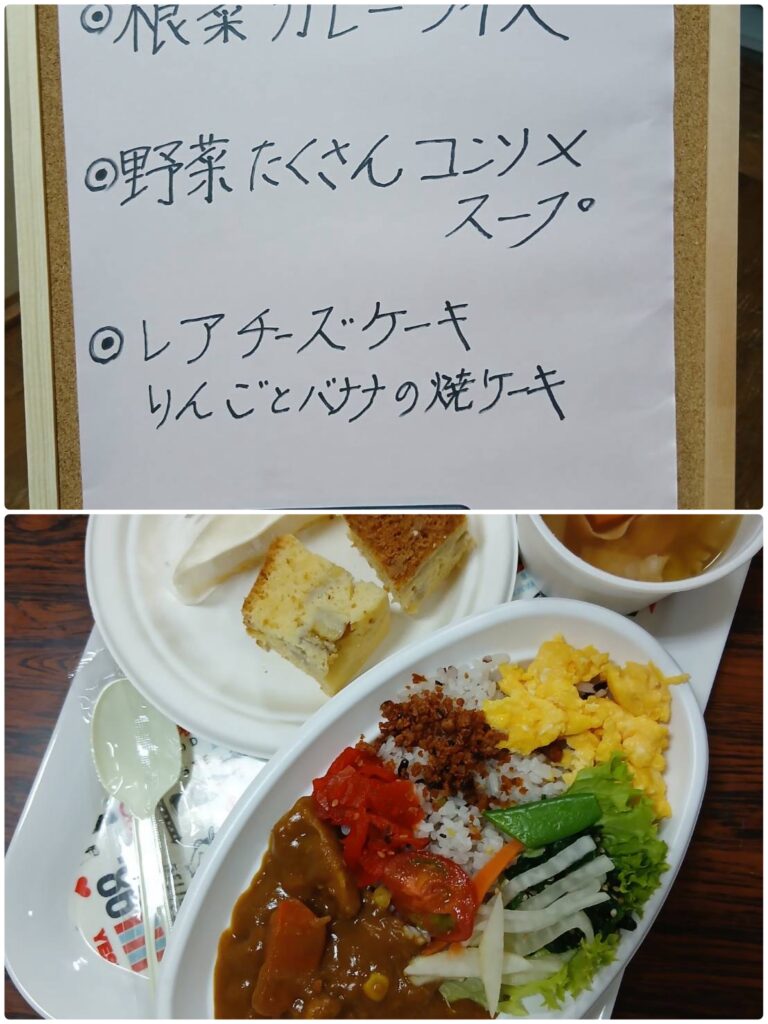 ◎根菜カレーライス
◎野菜たくさんコンソメ
スープ
◎レアチーズケーキ
りんごとバナナの焼ケーキ
YES